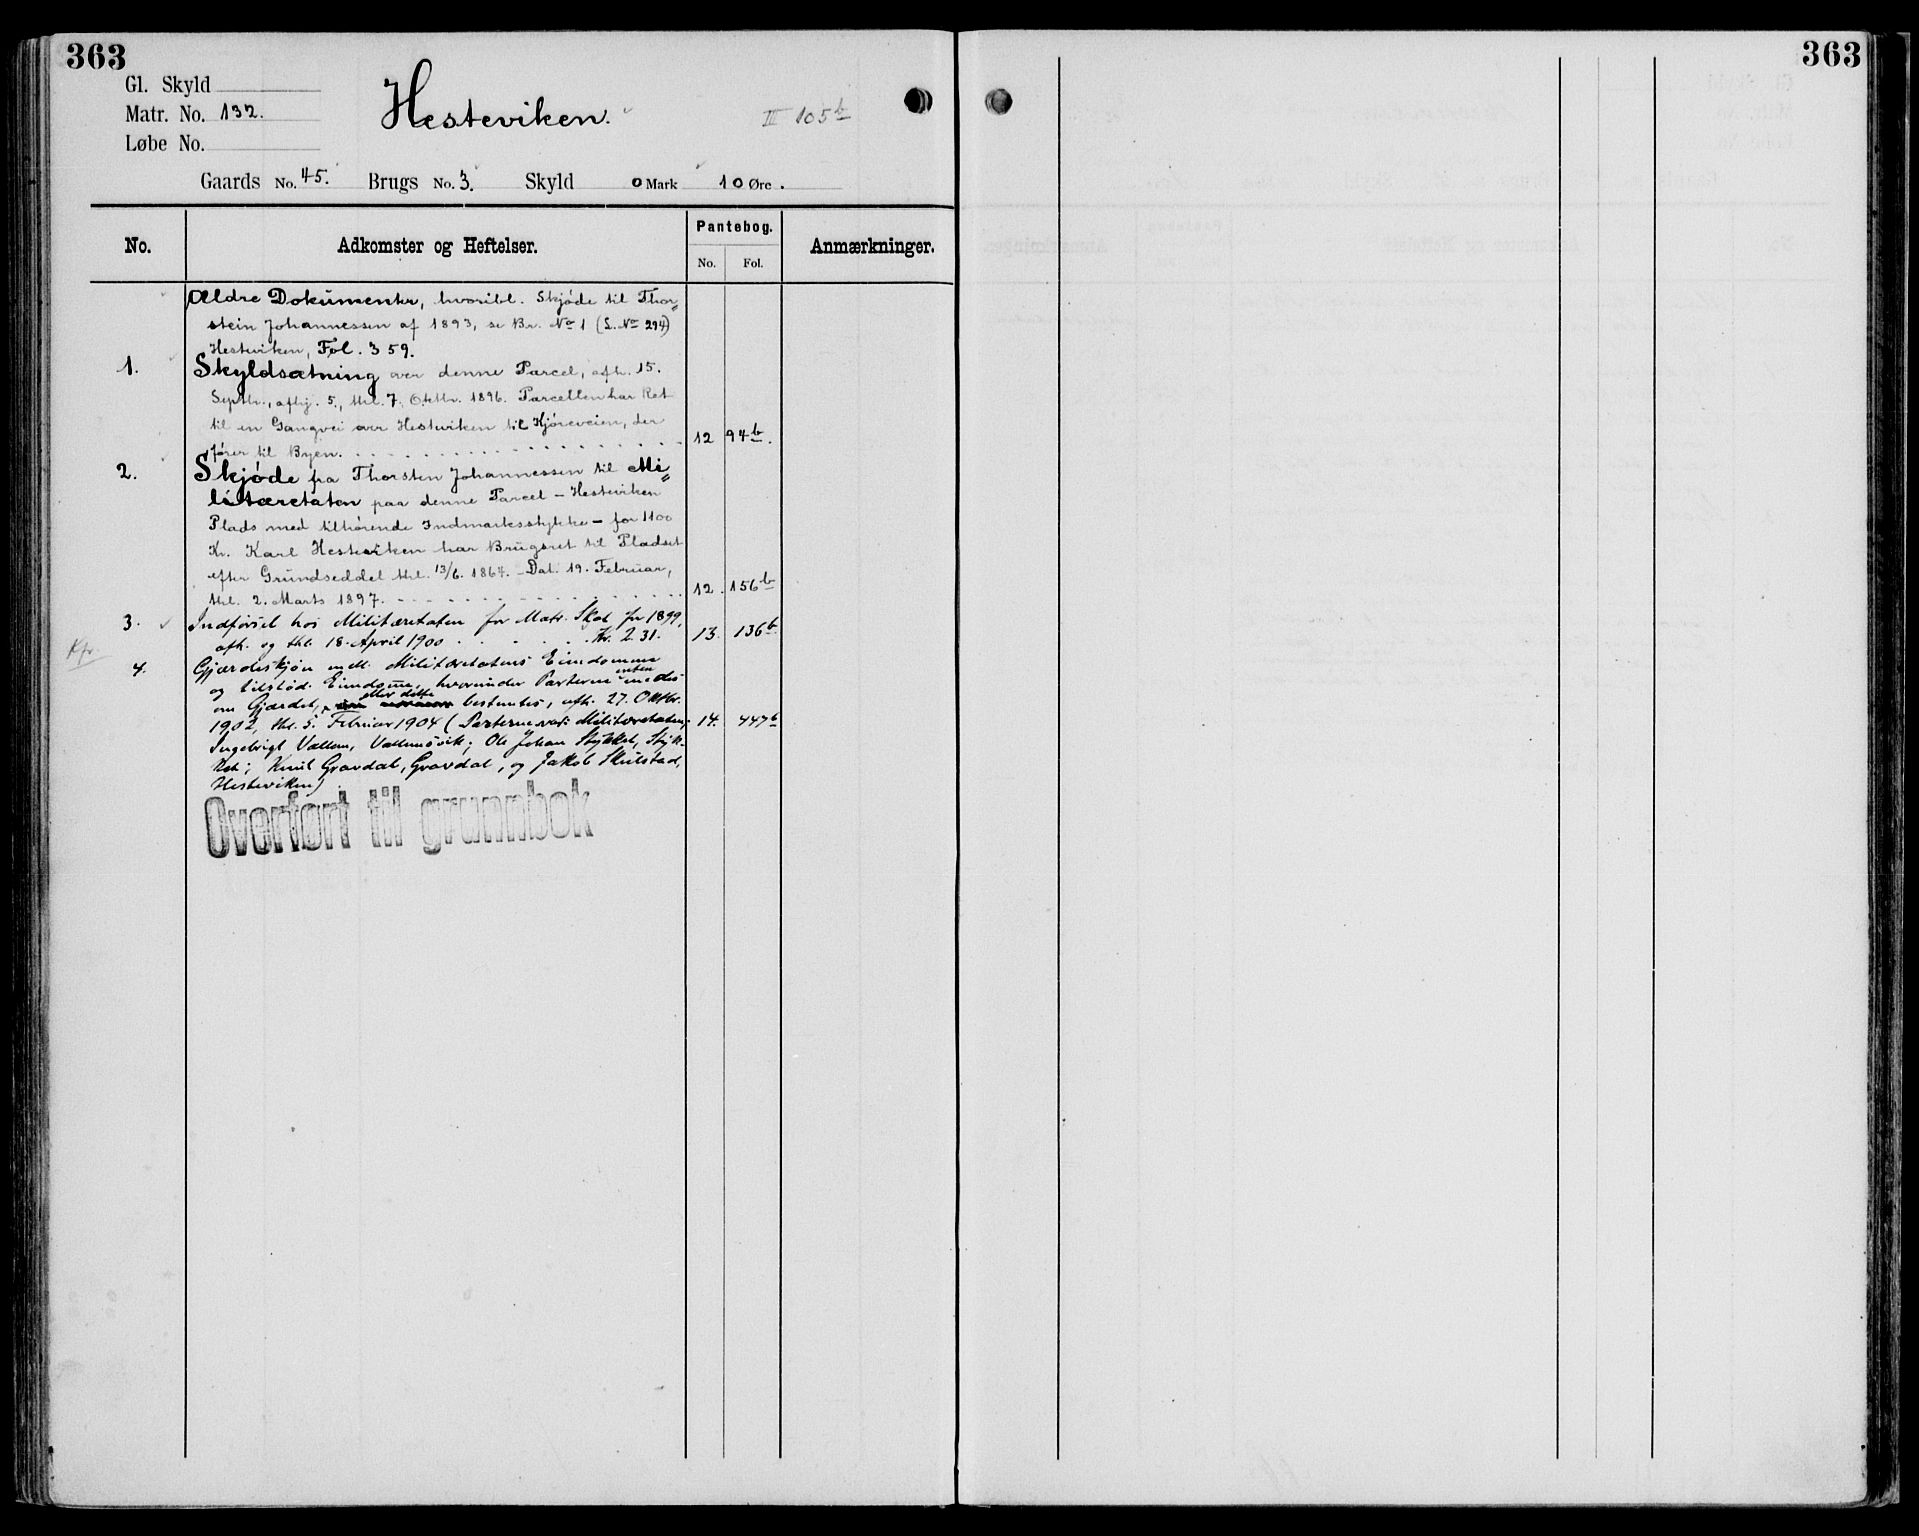 363
363
Gl. Skyld
Matr. No. 132.
Løbe No.
Hesteviken.
III 105 b
Gaards No. 45. Brugs No. 3. Skyld 0 Mark 10 Øre.
No.
Adkomster og Heftelser.
Pantebog.
No. Fol.
Anmærkninger.
Ældre Dokumenter, hvoribl. Skjøde til Thor=
stein Johannessen af 1893, se Br. No 1 (L. No 294)
Hesteviken, Fol. 359.
1. Skyldsætning over denne Parcel, afh. 15.
Septbr., afhj. 5., thl. 7. Oktbr. 1896. Parcellen har Ret
til en Gangvei over Hesteviken til Kjøreveien, der
fører til Byen. 12 94 b.
2. Skjøde fra Thorsten Johannessen til Mi=
litæretaten paa denne Parcel - Hesteviken
Plads med tilhørende Indmarksstykke - for 1100
Kr. Karl Hesteviken har Brugsret til Pladset
efter Grundseddel thl. 13/6. 1864. Dat. 19. Februar,
thl. 2. Marts 1897. 12. 156 b
3. Indførsel hos Militæretaten for Matr. Skat for 1899,
afh. og thl. 18. April 1900 Kr. 2.31. 13. 136 b
Kfr.
4. Gjærdeskjøn mell. Militæretatens Eiendomme
og tilstød. Eiendomme, hvorunder Parterne enten enedes
om Gjærdet, eller dette bestemtes, afh. 27. Oktbr.
1902, thl. 5. Februar 1904 (Parterne var: Militæretaten, 14. 447 b
Ingebrigt Vallem, Vallemsvik; Ole Johan Stykket, Styk-
ket; Knut Gravdal, Gravdal, og Jakob Skilstad,
Hesteviken)
Overført til grunnbok